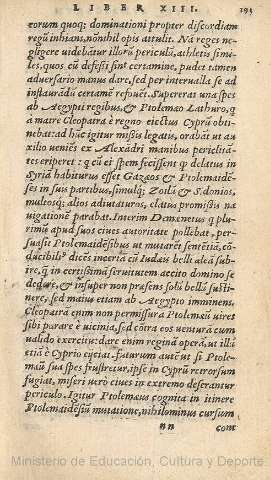 LIBER XIII. 193
eorum quoq; dominationi propter discordiam
regũ inhians, nõnihil opis attulit. Nã reges ne-
gligere uidebãtur illorũ periculũ, athletis simi-
les, quos cũ defessi sint certamine, pudet tamen
aduersario manus dare, sed per interualla se ad
instaurãdũ certamẽ refouẽt. Supererat una spes
ab Aegypti regibus, & Ptolemæo Lathuro, q
a matre Cleopatra è regno eiectus Cyprũ obti-
nebat: ad hũc igitur missis legatis, orabãt ut au
xilio veniẽs ex Alexãdri manibus periclitã-
tes eriperet: q cũ ei spem fecissent q delatus in
Syriã habiturus esset Gazæos & Ptolemaidẽ-
ses in suis partibus, simulq; Zoilũ & Sidonios,
multosq; alios adiutaturos, elatus promissis na
uigationẽ parabat. Interim Demænetus q plu-
rimũ apud suos ciues autoritate pollebat, per-
suasit Ptolemaidẽsibus ut mutarẽt sentẽtiã, cõ-
ducibiliº dicẽs incertã cũ Iudæis belli aleã subi-
re, q in certissimã seruitutem accito domino se
dedere, & insuper non præsens solũ bellũ susti-
nere, sed maius etiam ab Aegypto imminens.
Cleopatrã enim non permissurã Ptolemæũ vires
sibi parare è uicinia, sed cõtra eos uenturã cum
ualido exercitu: dare enim reginã operã, ut illũ
etiã è Cypro eijciat. Futurum autẽ ut si Ptole-
mæũ sua spes frustretur, ipse in Cyprũ retrorsum
fugiat, miseri vero ciues in extremo deserantur
periculo. Igitur Ptolemæus cognita in itinere
Ptolemaidẽsiũ mutatione, nihilominus cursum
nn com
Ministerio de Educación, Cultura y Deporte